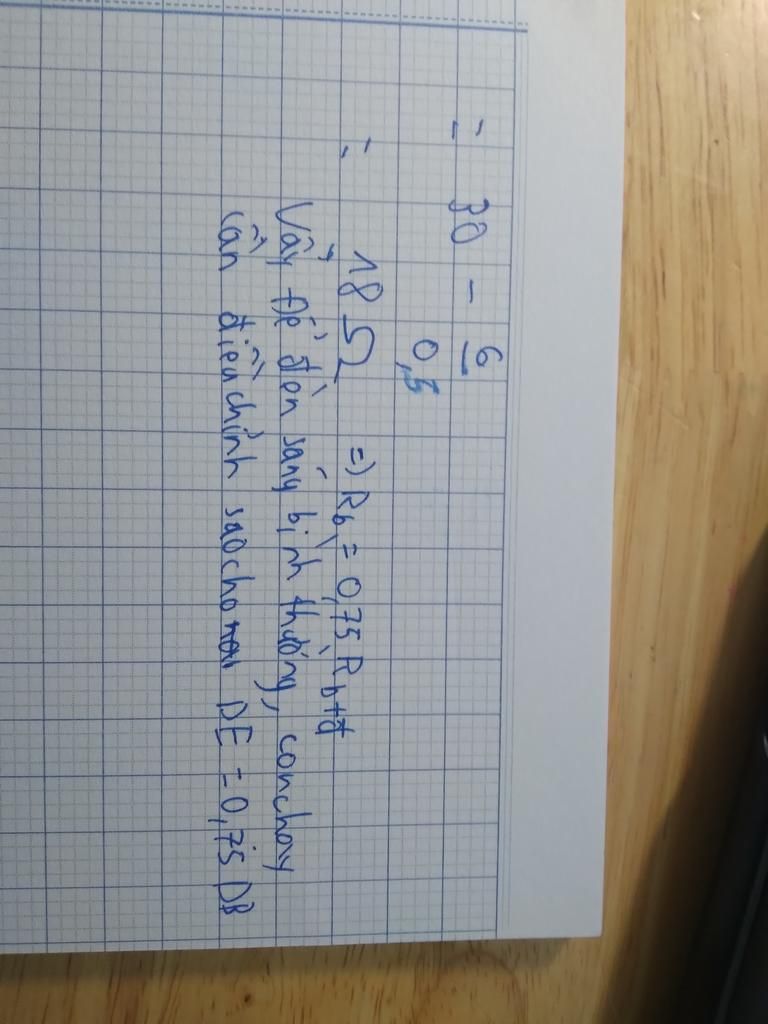 = 30 - 6
0,5
= 18 Ω => Rb = 0,75 Rb+đ
Vậy để đèn sáng bình thường, con chạy
cần điều chỉnh sao cho DE = 0,75 DB